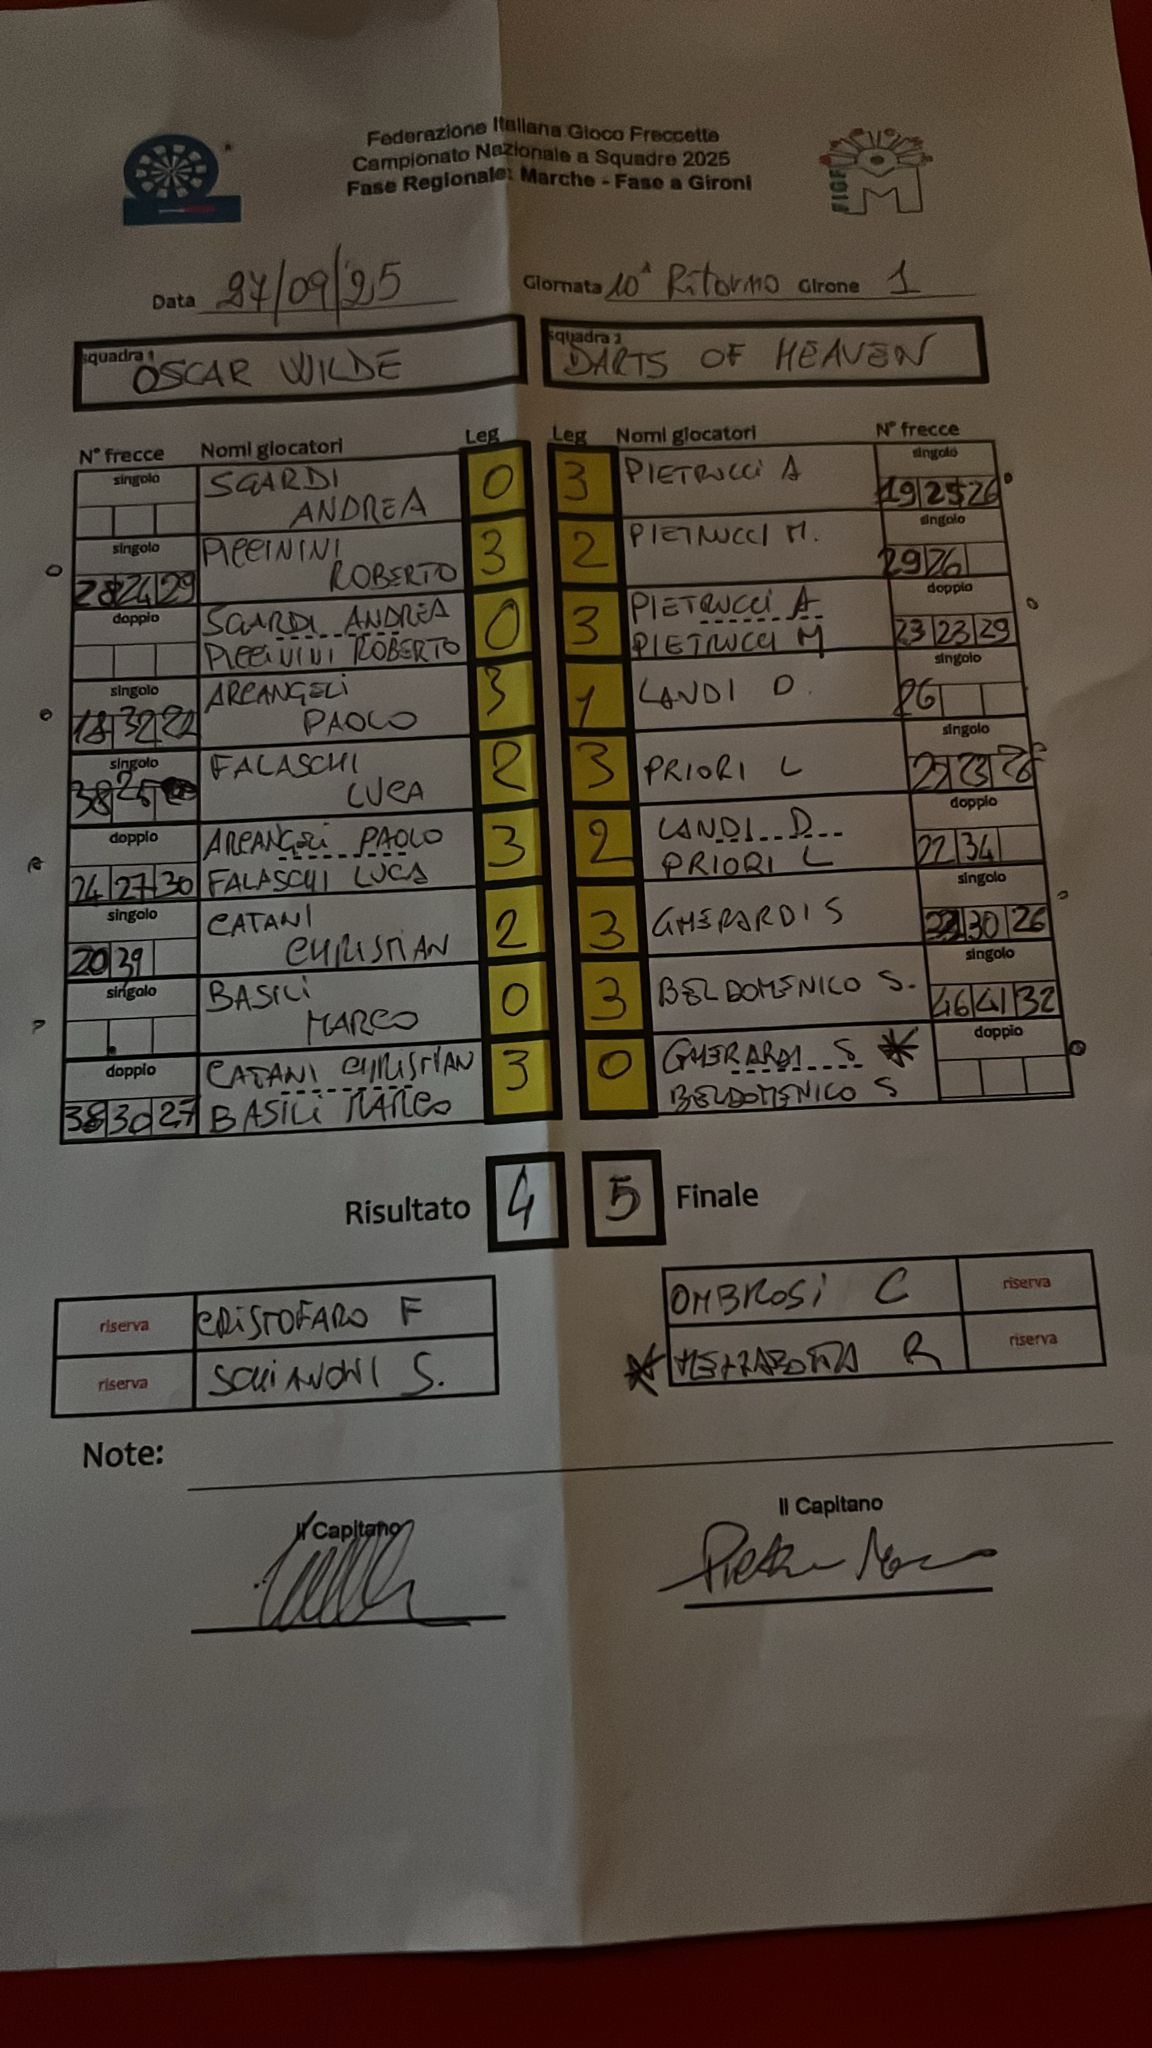 Federazione Italiana Gioco Freccette
Campionato Nazionale a Squadre 2025
Fase Regionale: Marche - Fase a Gironi
FIGF
M
Data 27/09/25 Giornata 10ª Ritorno Girone 1
squadra 1 OSCAR WILDE
squadra 2 DARTS OF HEAVEN
N° frecce Nomi giocatori Leg Leg Nomi giocatori N° frecce
singolo SGARDI ANDREA 0 3 PIETRUCCI A singolo 19 25 26
singolo 28 24 29 PICCININI ROBERTO 3 2 PIETRUCCI M. singolo 29 26
doppio SGARDI ANDREA PICCININI ROBERTO 0 3 PIETRUCCI A PIETRUCCI M doppio 23 23 29
singolo 18 32 22 ARCANGELI PAOLO 3 1 LANDI D. singolo 26
singolo 38 25 FALASCHI LUCA 2 3 PRIORI L singolo 23
doppio 24 27 30 ARCANGELI PAOLO FALASCHI LUCA 3 2 LANDI D PRIORI L doppio 22 34
singolo 20 39 CATANI CHRISTIAN 2 3 GHERARDI S singolo 30 26
singolo BASILI MARCO 0 3 BELDOMENICO S. singolo 46 41 32
doppio 38 30 27 CATANI CHRISTIAN BASILI MARCO 3 0 GHERARDI S * BELDOMENICO S doppio
Risultato 4 5 Finale
riserva CRISTOFARO F OMBROSI C riserva
riserva SCHIANONI S. * MEZZABOTTA R riserva
Note:
Il Capitano Il Capitano